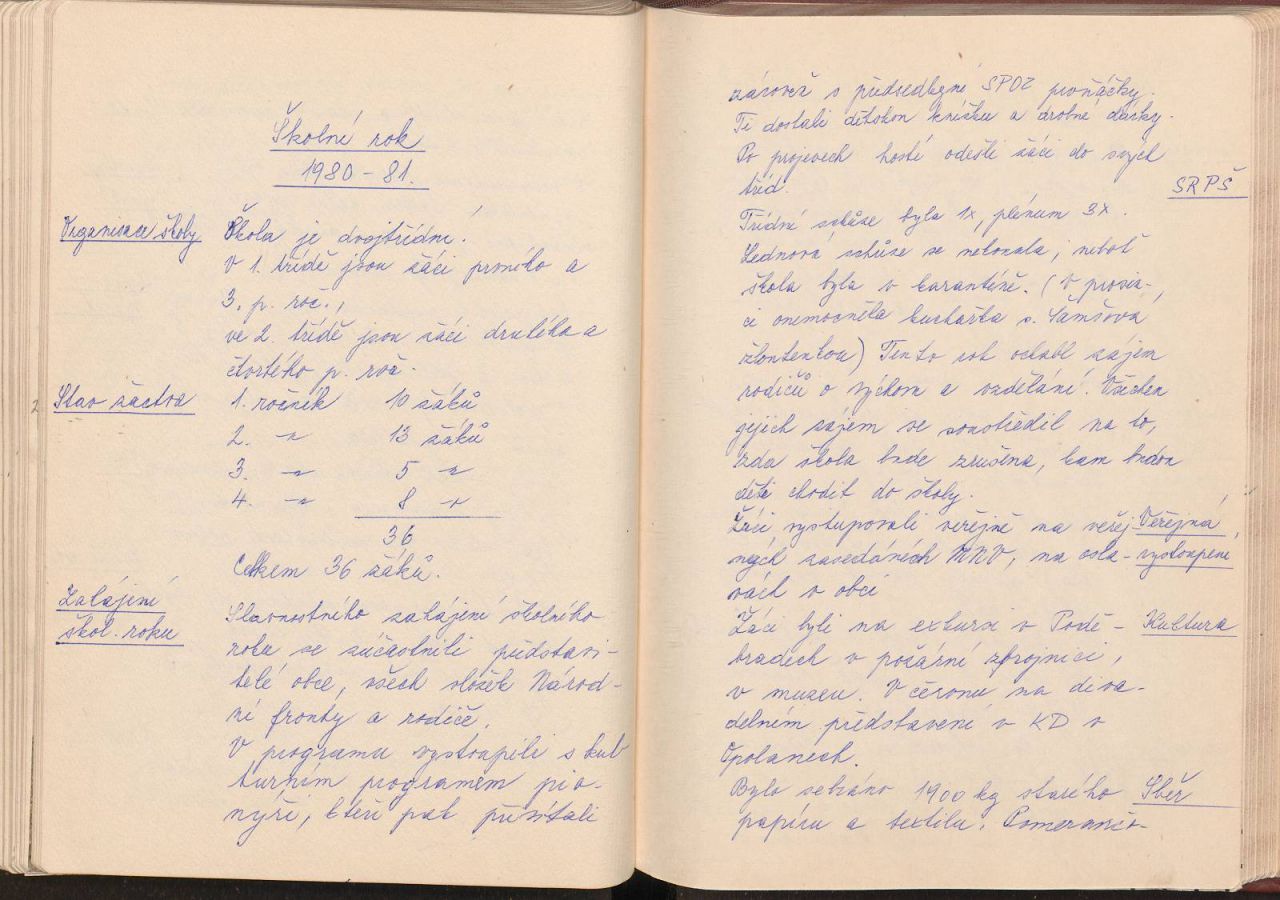 Školní rok
1980 – 81.
Organisace školy
Škola je dvojtřídní.
V 1. třídě jsou žáci prvního a
3. p. roč.,
ve 2. třídě jsou žáci druhého a
čtvrtého p. roč.
Stav žactva
1. ročník 10 žáků
2. –„– 13 žáků
3. –„– 5 –„–
4. –„– 8 –„–
36
Celkem 36 žáků.
Zahájení
škol. roku
Slavnostního zahájení školního
roku se zúčastnili představi-
telé obce, všech složek Národ-
ní fronty a rodiče.
V programu vystoupili s kul
turním programem pio-
nýři, kteří pak přivítali
zároveň s předsedkyní SPOZ prvňáčky.
Ti dostali dětskou knížku a drobné dárky.
Po projevech hostí odešli žáci do svých
tříd.
SRPŠ
Třídní schůze byla 1x, plénum 3x.
Lednová schůze se nekonala, neboť
škola byla v karanténě. (V prosin-
ci onemocněla kuchařka s.
žloutenkou) Tento rok ochabl zájem
rodičů o výchovu a vzdělání. Všechen
jejich zájem se soustředil na to,
zda škola bude zrušena, kam budou
děti chodit do školy.
Veřejná
vystoupení
Žáci vystupovali veřejně na veřej
ných zasedáních MNV, na osla-
vách v obci
Kultura
Žáci byli na exkursi v Podě-
bradech v požární zbrojnici,
v muzeu. V červnu na diva-
delním představení v KD v
Opolanech.
Sběr
Bylo sebráno 1900 kg starého
papíru a textilu. Pomeranč-